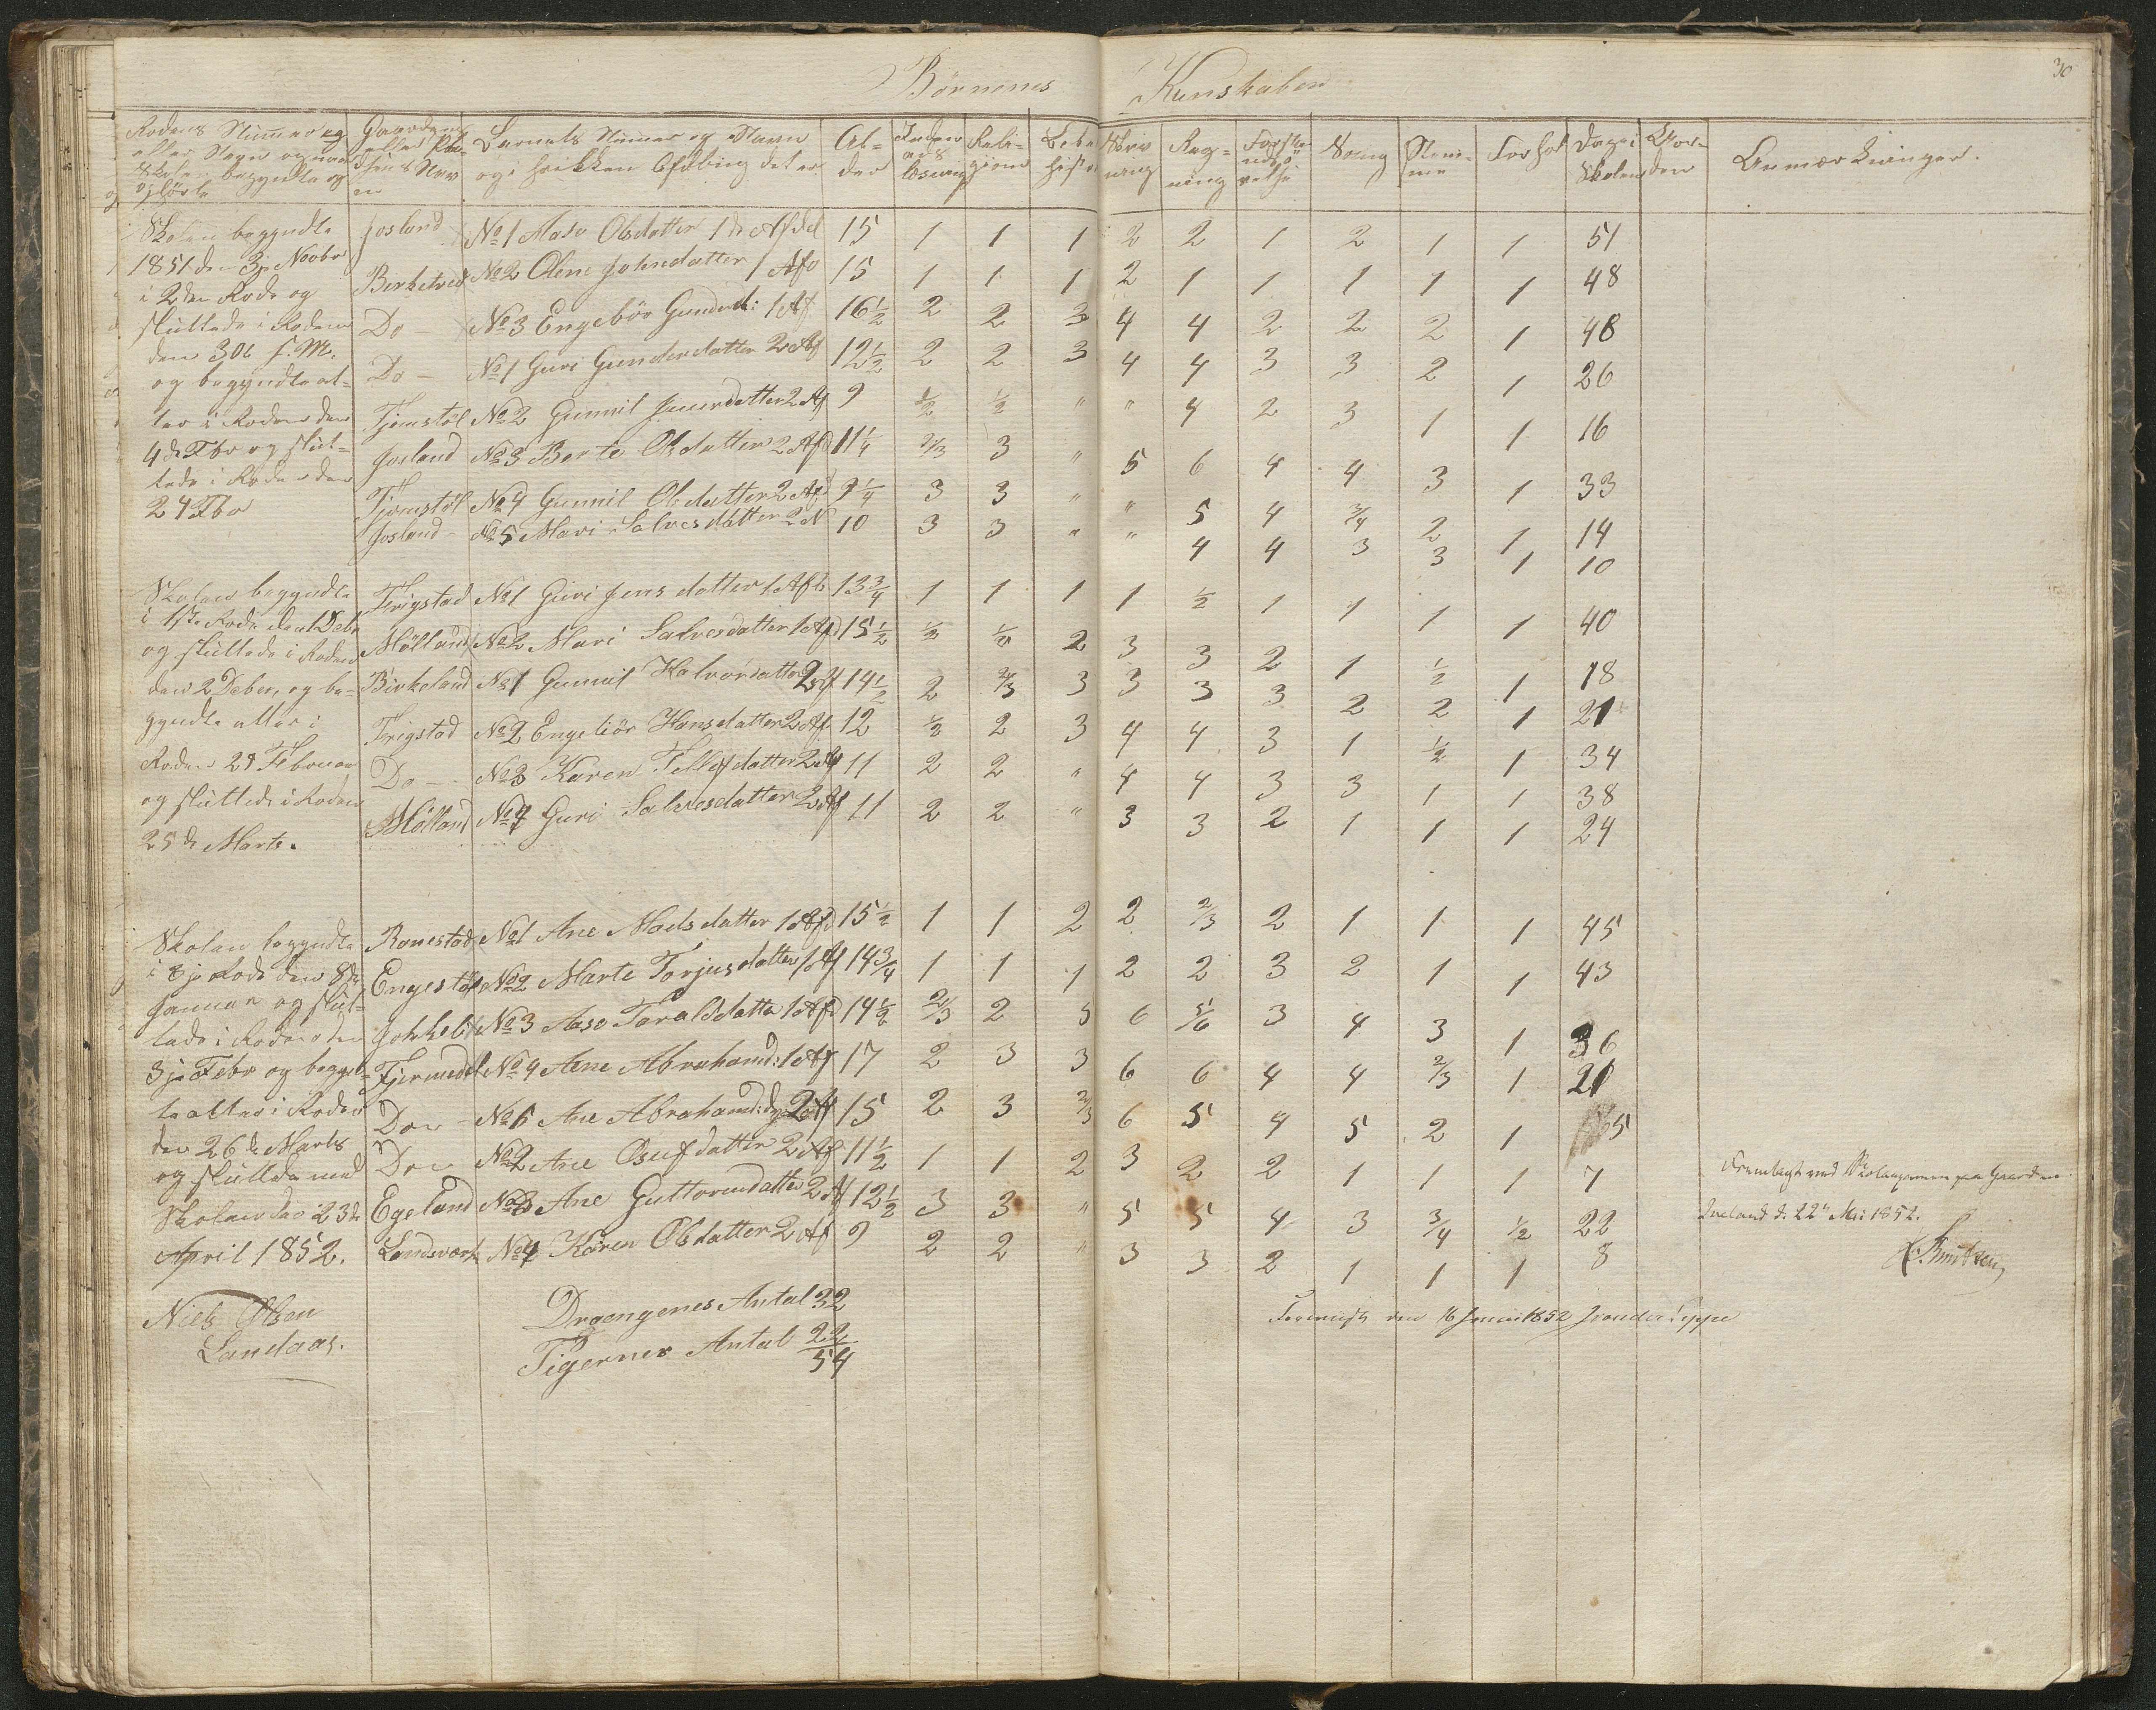 30
Børnenes Kunskaber
Rodens Nummer og Gaardens Barnets Nummer og Navn Al- Religions Skriv Reg- Sang Stem- Forhol Dage i Anmærkninger.
eller Navn og naar og i hvilken Afdeling det er der læsning ning ning me Skolen
Skolen begyndte og
Skolen begyndte Josland No 1 Aase Olsdatter 1ste Afdel 15 1 1 1 2 2 1 2 1 1 51
1851 den 3je Novbr Birketved No 2 Olene Johnsdatter 1 Afd 15 1 1 1 2 1 1 1 1 1 48
i 2den Rode og
sluttede i Roden Do — No 3 Engebør Gundersd: 1 Af 16½ 2 2 3 4 4 2 2 2 1 48
den 30te s. M.
og begyndte at- Do — No 1 Guri Gundersdatter 2 Af 12½ 2 2 3 4 4 3 3 2 1 26
ter i Roden den Tjomstøl No 2 Gunnil 2 Af 9 ½ ½ " " 4 2 3 1 1 16
4de Fbr og slut- Josland No 3 Berte Olsdatter 2 Afd 11¼ 2/3 3 " 5 6 4 4 3 1 33
tede i Roden den Tjomstøl No 4 Gunnil Olsdatter 2 Afd 9¼ 3 3 " " 5 4 3/4 2 1 14
24 Fbr Josland — No 5 Mari Salvesdatter 2 Af 10 3 3 " " 4 4 3 3 1 10
Skolen begyndte Frigstad No 1 Guri Jensdatter 1 Afd 13¾ 1 1 1 1 ½ 1 1 1 1 40
i 1ste Rode den 1 Debr
og sluttede i Roden Mølland No 2 Mari Salvesdatter 1 Afd 15½ ½ ½ 2 3 3 2 1 ½ 1 18
den 2 Deber, og be- Birkeland No 1 Gunnil Halvorsdatter 2 Af 14½ 2 2/3 3 3 3 3 2 2 1 21
gyndte atter i Frigstad No 2 Engebør Hansdatter 2 Af 12 ½ 2 3 4 4 3 1 ½ 1 34
Roden 29 Februar Do — No 3 Karen Tellefsdatter 2 Af 11 2 2 " 4 4 3 3 1 1 38
og sluttede i Roden Mølland No 4 Guri Salvesdatter 2 Af 11 2 2 " 3 3 2 1 1 1 24
25de Marts.
Skolen begyndte Ronestad No 1 Ane Madsdatter 1 Afd 15½ 1 1 2 2 2/3 2 1 1 1 45
i 3je Rode den 8de Engestøl No 2 Marte Torjusdatter 1 Af 14¾ 1 1 1 2 2 3 2 1 1 43
Januar og slut-
tede i Roden den No 3 Aase Taraldsdatter 1 Afd 14½ 2/3 2 5 6 5/6 3 4 3 1 36
3je Febr og begyn- Fjermedal No 4 Ane Abrahamsd: 1 Af 17 2 3 3 6 6 4 4 2/3 1 21
te atter i Roden Do — No 1 Ane Abrahamsd: 2 Af 15 2 3 2/3 6 5 4 5 2 1 5
den 26de Marts Do — No 2 Ane Osufsdatter 2 Af 11½ 1 1 2 3 2 2 1 1 1 7
og sluttede med Egeland No 3 Ane Guttormsdatter 2 Af 12½ 3 3 " 5 5 4 3 3/4 ½ 22
Skolen den 23de
April 1852. Landsverk No 4 Karen Olsdatter 2 Af 9 2 2 " 3 3 2 1 1 1 8
Fremlagt ved Skoleexamen paa Gaarden
Iveland d. 22de Mai 1852.
Niels Olsen
Landaas.
Drengenes Antal 32
Pigernes Antal 22
54
Foreviist den 16 Junii 1852